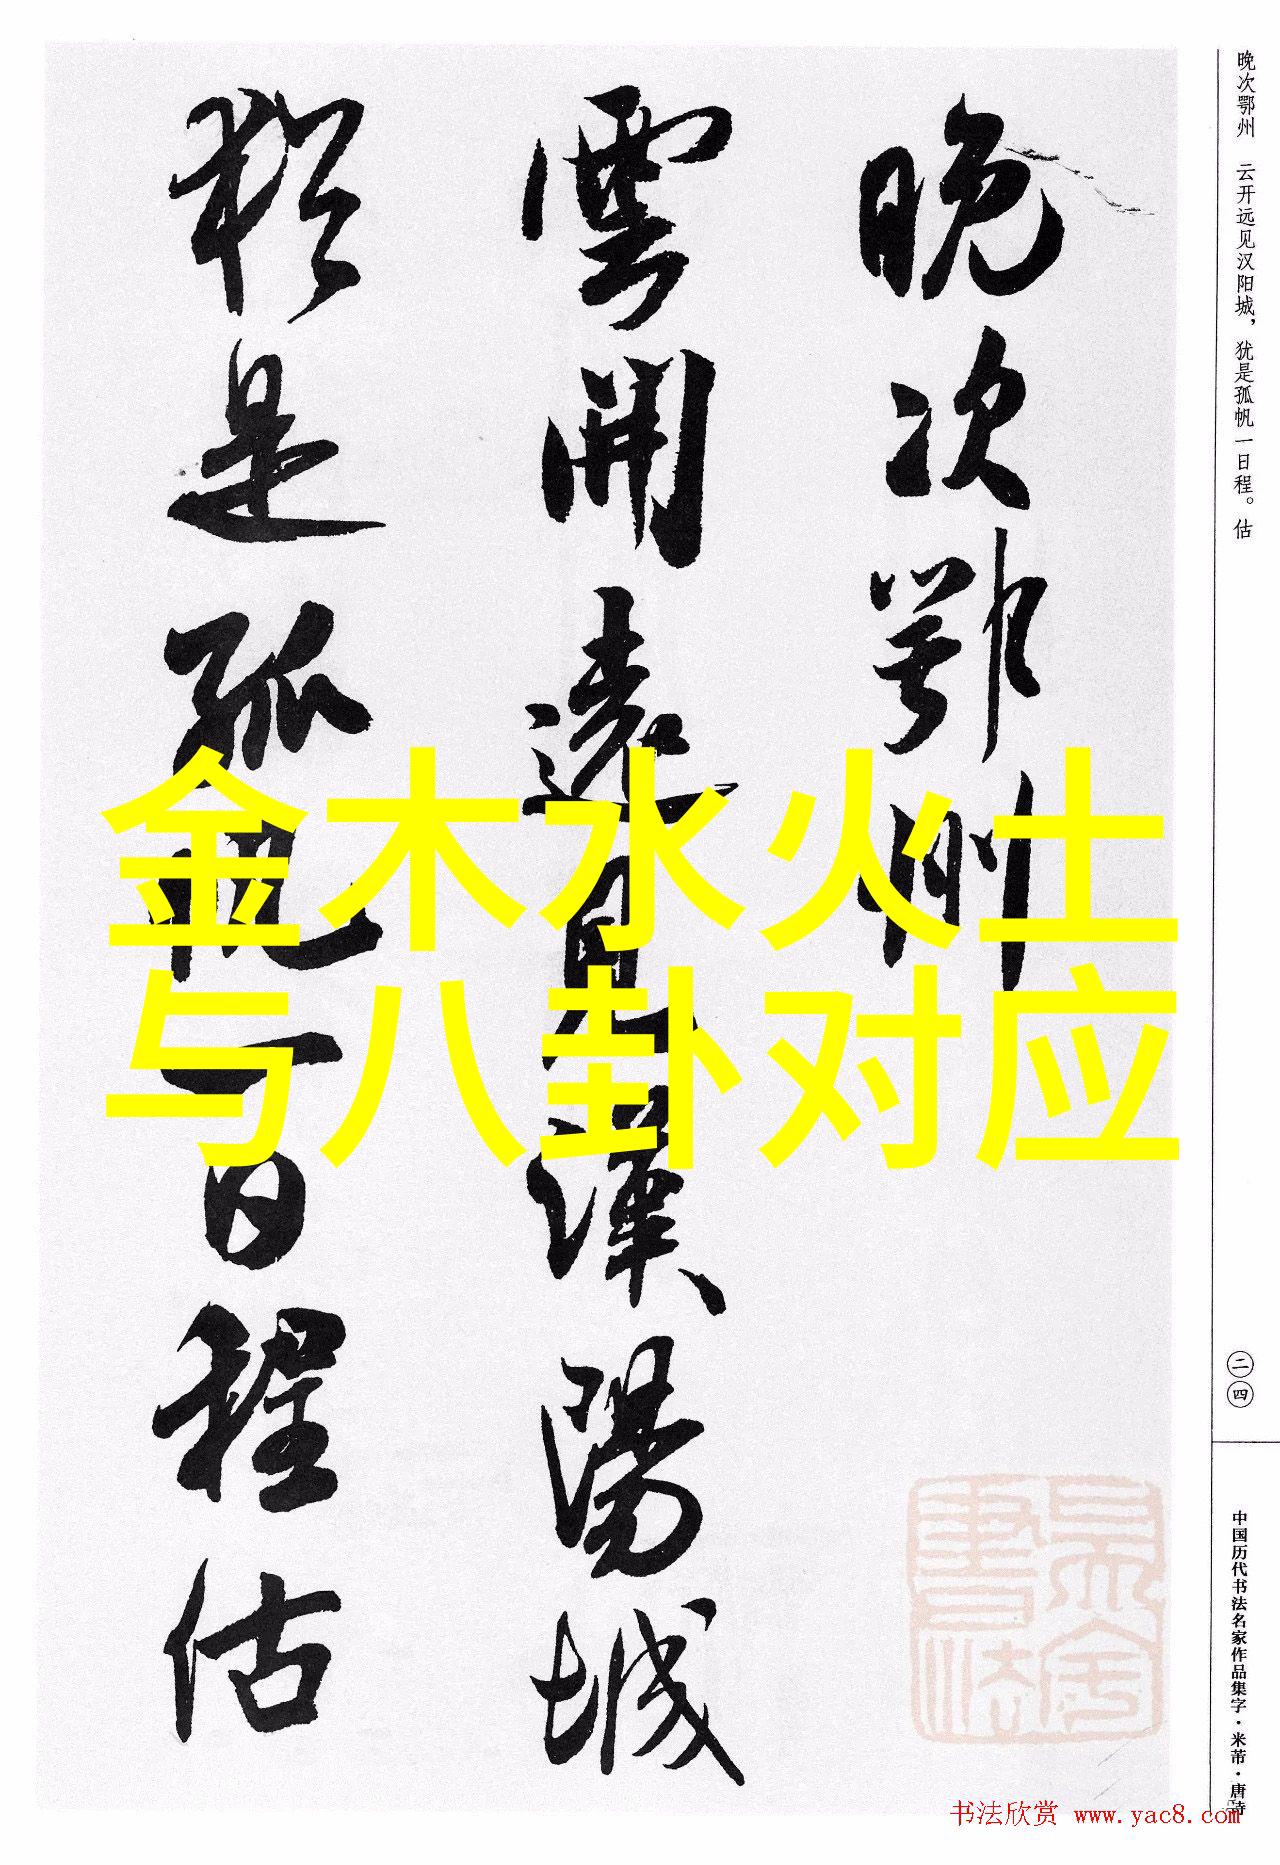 金木水火土
与八卦对应
晚次鄂州
雲開遠見漢陽城
猶是孤帆一日程估
晚次鄂州　云开远见汉阳城，犹是孤帆一日程。估
二四
中国历代书法名家作品集字·米芾·唐诗
书法欣赏 www.yac8.com